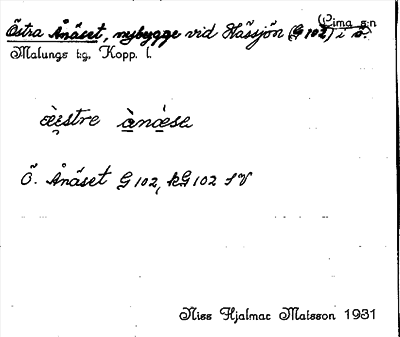 Östra Ånäset, nybygge vid Hässjön (G 102) i ö.
Lima s:n
Malungs tg, Kopp. l.
æ̀istre ànæ̀se
Ö. Ånäset G 102, kG 102 SV
Niss Hjalmar Matsson 1931